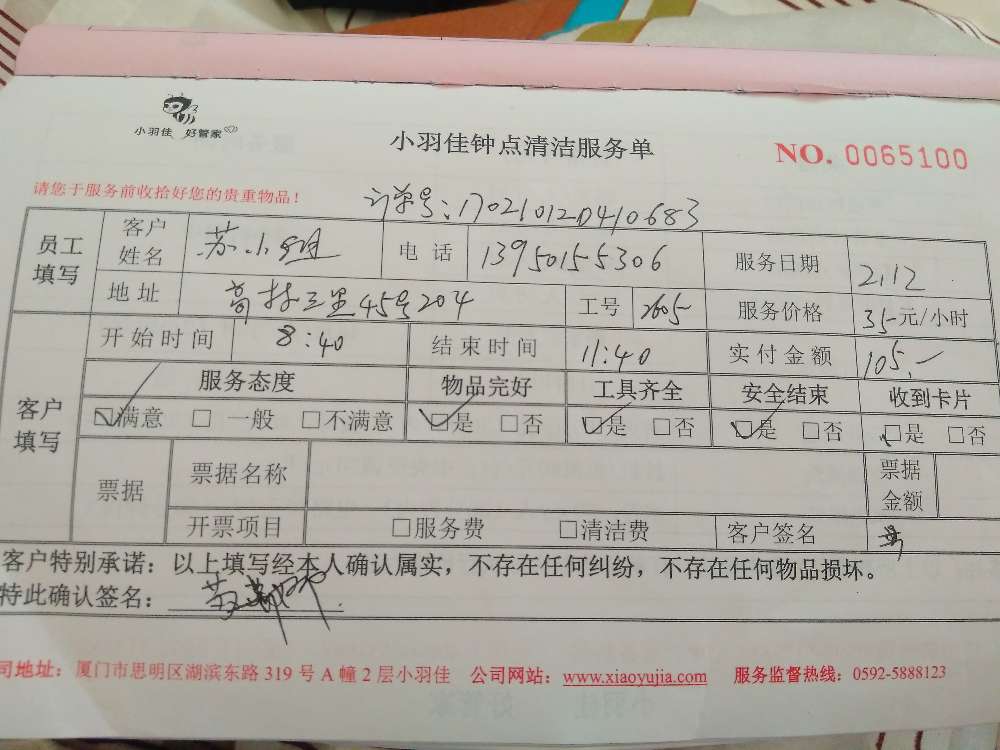 小羽佳 好管家
小羽佳钟点清洁服务单
NO. 0065100
请您于服务前收拾好您的贵重物品！
订单号：17021012D410683
员工填写 客户姓名 苏小姐 电话 13950155306 服务日期 2.12
地址 45号204 工号 2605 服务价格 35元/小时
客户填写 开始时间 8:40 结束时间 11:40 实付金额 105.-
服务态度 物品完好 工具齐全 安全结束 收到卡片
☑满意 □一般 □不满意 ☑是 □否 ☑是 □否 ☑是 □否 ☑是 □否
票据 票据名称 票据金额
开票项目 □服务费 □清洁费 客户签名
客户特别承诺：以上填写经本人确认属实，不存在任何纠纷，不存在任何物品损坏。
特此确认签名：
司地址：厦门市思明区湖滨东路 319 号 A 幢 2 层小羽佳 公司网站：www.xiaoyujia.com 服务监督热线：0592-5888123